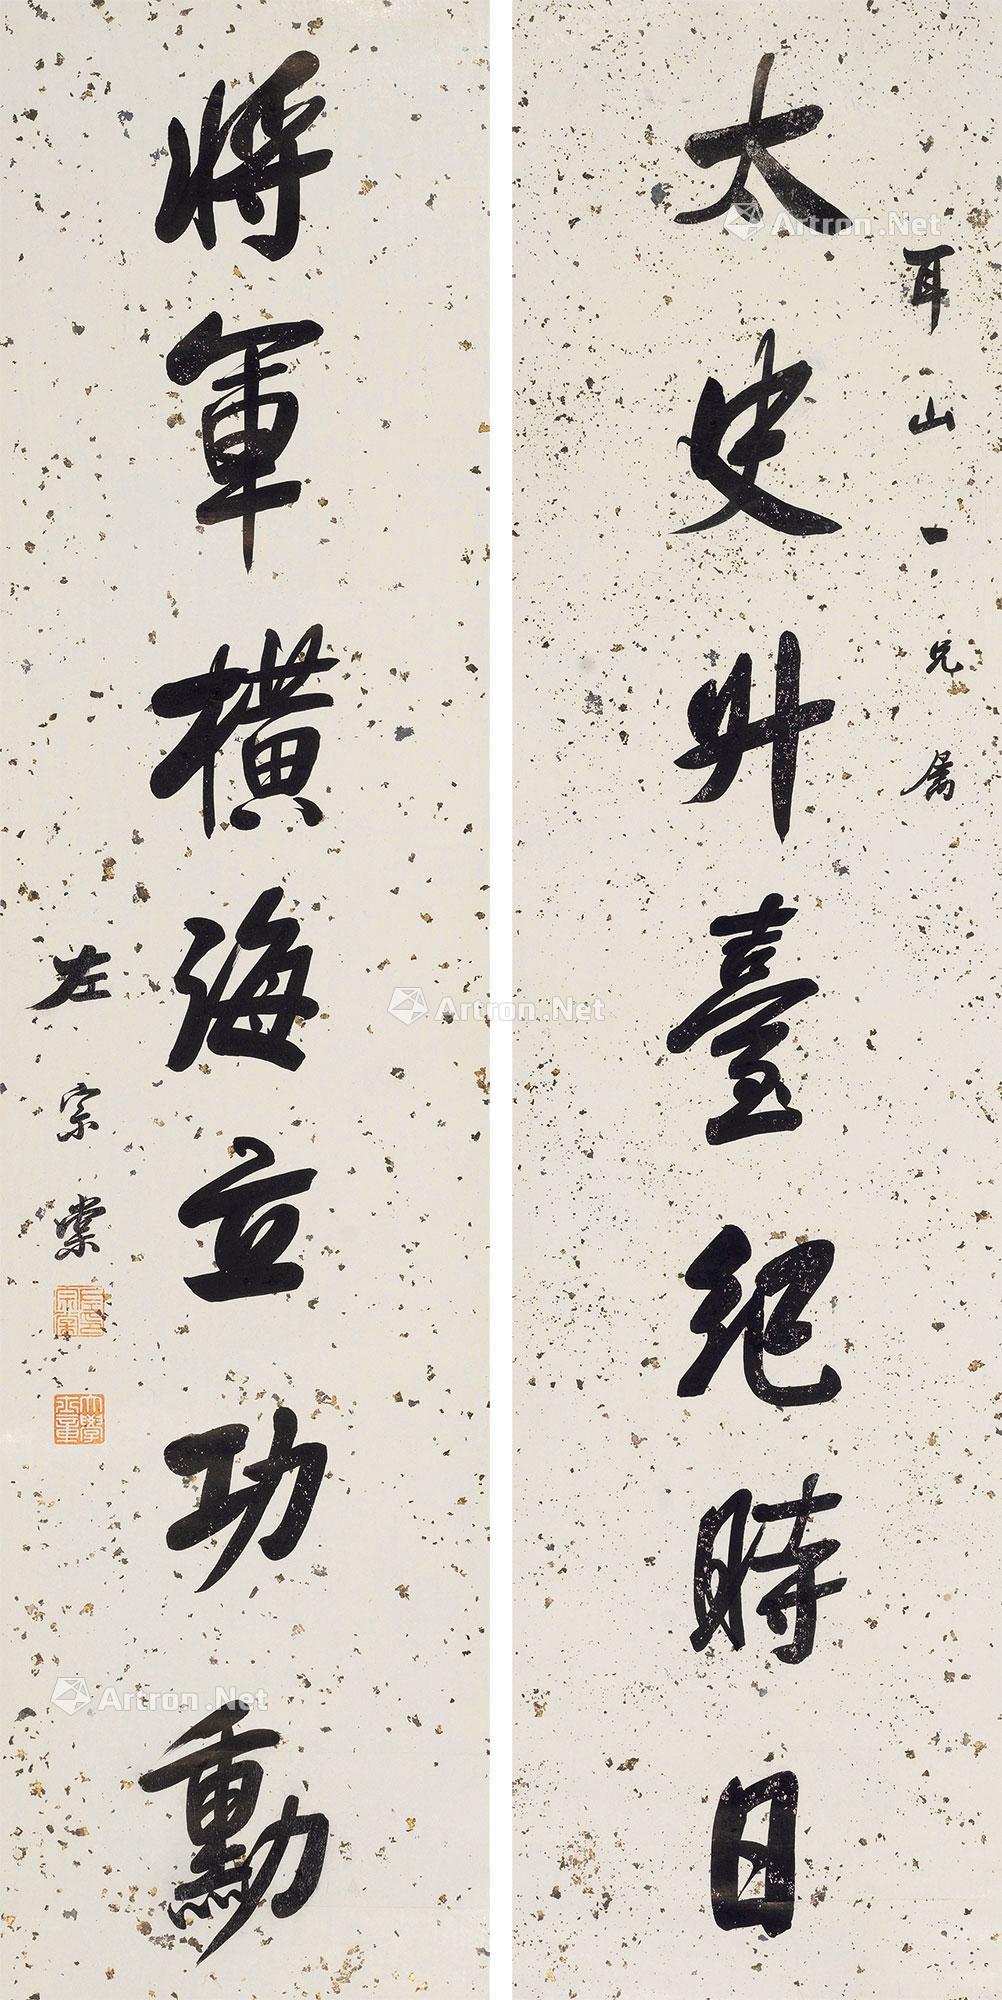 耳山一兄屬
太史升臺紀時日
將軍橫海立功勳
左宗棠
大學士章
Artron.Net
Artron.Net
Artron.Net